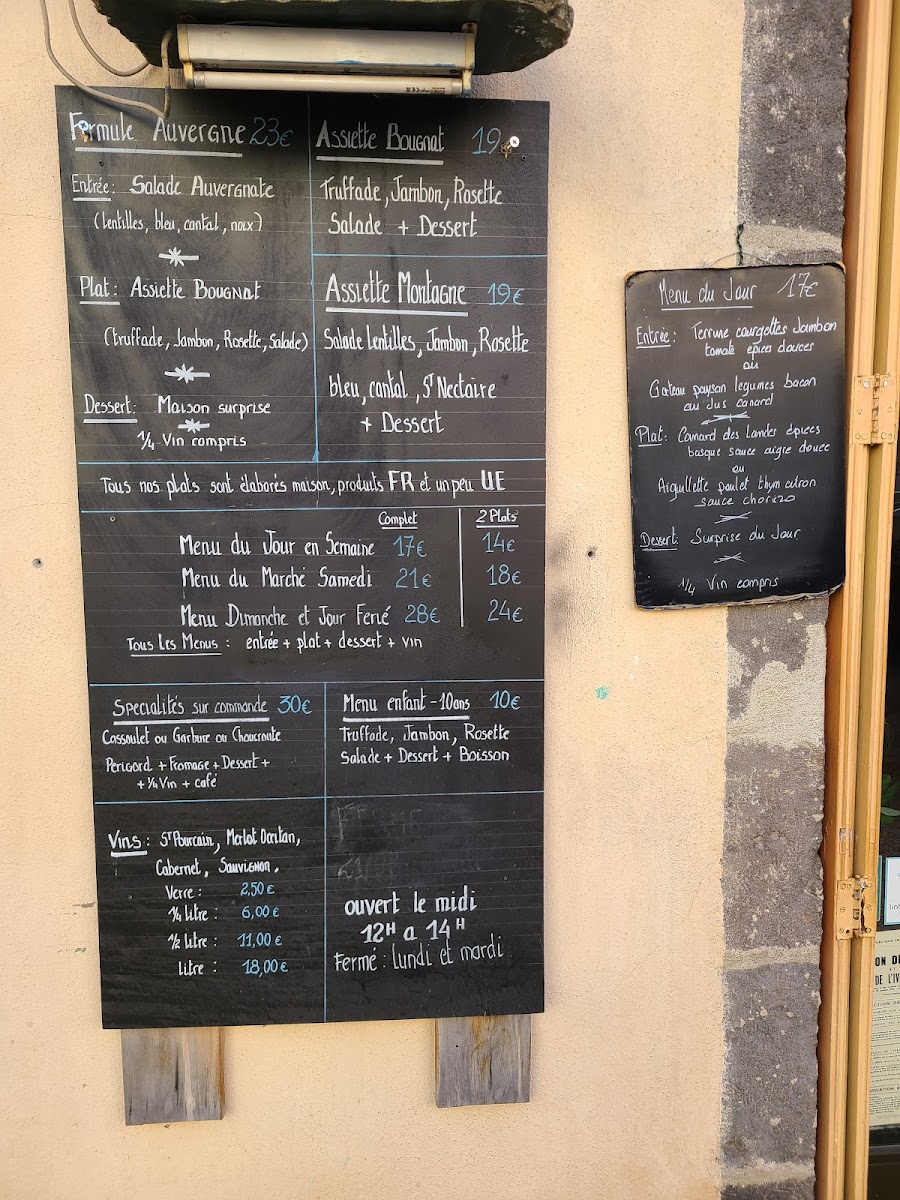 Formule Auvergne 23€
Entrée: Salade Auvergnate
(lentilles, bleu, cantal, noix)
Plat: Assiette Bougnat
(truffade, Jambon, Rosette, Salade)
Dessert: Maison surprise
1/4 Vin compris
Assiette Bougnat 19€
Truffade, Jambon, Rosette
Salade + Dessert
Assiette Montagne 19€
Salade lentilles, Jambon, Rosette
bleu, cantal, St Nectaire
+ Dessert
Tous nos plats sont élaborés maison, produits FR et un peu UE
Complet 2 Plats
Menu du Jour en Semaine 17€ 14€
Menu du Marché Samedi 21€ 18€
Menu Dimanche et Jour Ferié 28€ 24€
Tous Les Menus : entrée + plat + dessert + vin
Specialités sur commande 30€
Cassoulet ou Garbure ou Choucroute
Perigord + Fromage + Dessert +
+ 1/4 Vin + café
Menu enfant - 10 ans 10€
Truffade, Jambon, Rosette
Salade + Dessert + Boisson
Vins: St Pourcain, Merlot Occitan,
Cabernet, Sauvignon.
Verre : 2,50 €
1/4 litre : 6,00 €
1/2 litre : 11,00 €
litre : 18,00 €
ouvert le midi
12H a 14H
Fermé : lundi et mardi
Menu du Jour 17€
Entrée: Terrine courgettes Jambon
tomate épices douces
ou
Gateau paysan legumes bacon
au Jus canard
Plat: Canard des Landes épices
basque sauce aigre douce
ou
Aiguillette poulet thym citron
sauce chorizo
Dessert: Surprise du Jour
1/4 Vin compris